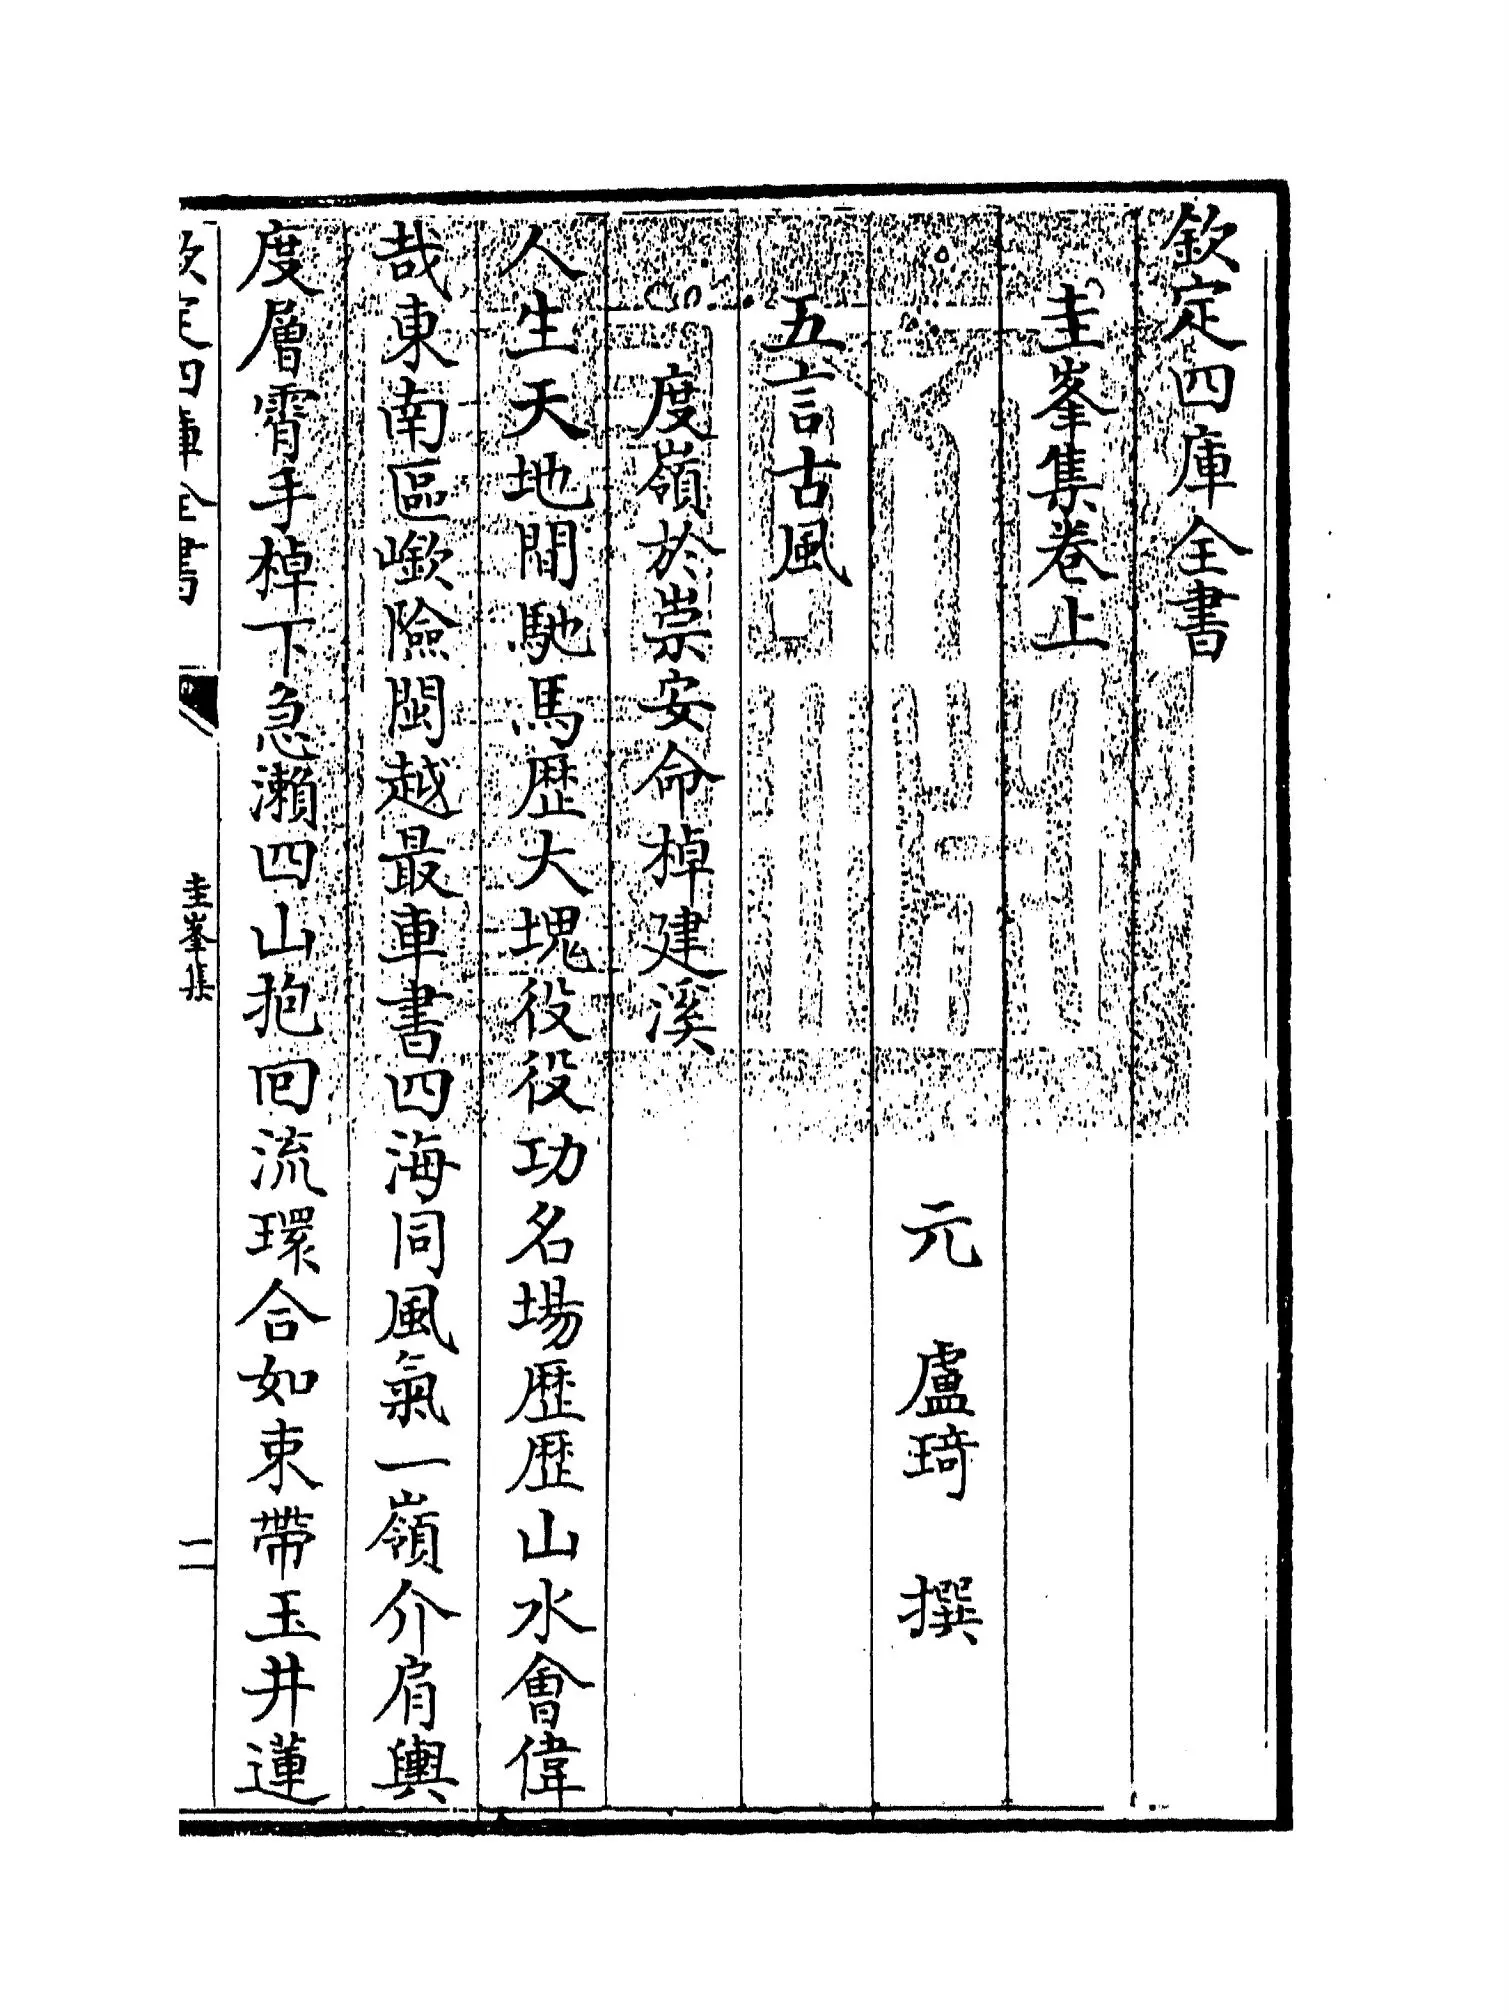 欽定四庫全書
圭峯集卷上
元　盧琦　撰
五言古風
度嶺於崇安命棹建溪
人生天地間馳馬歴大塊役役功名場歴歴山水會偉
哉東南區嶔險閩越最車書四海同風氣一嶺介肩輿
度層霄手棹下急瀨四山抱回流環合如束帶玉井蓮
欽定四庫全書
圭峯集
一